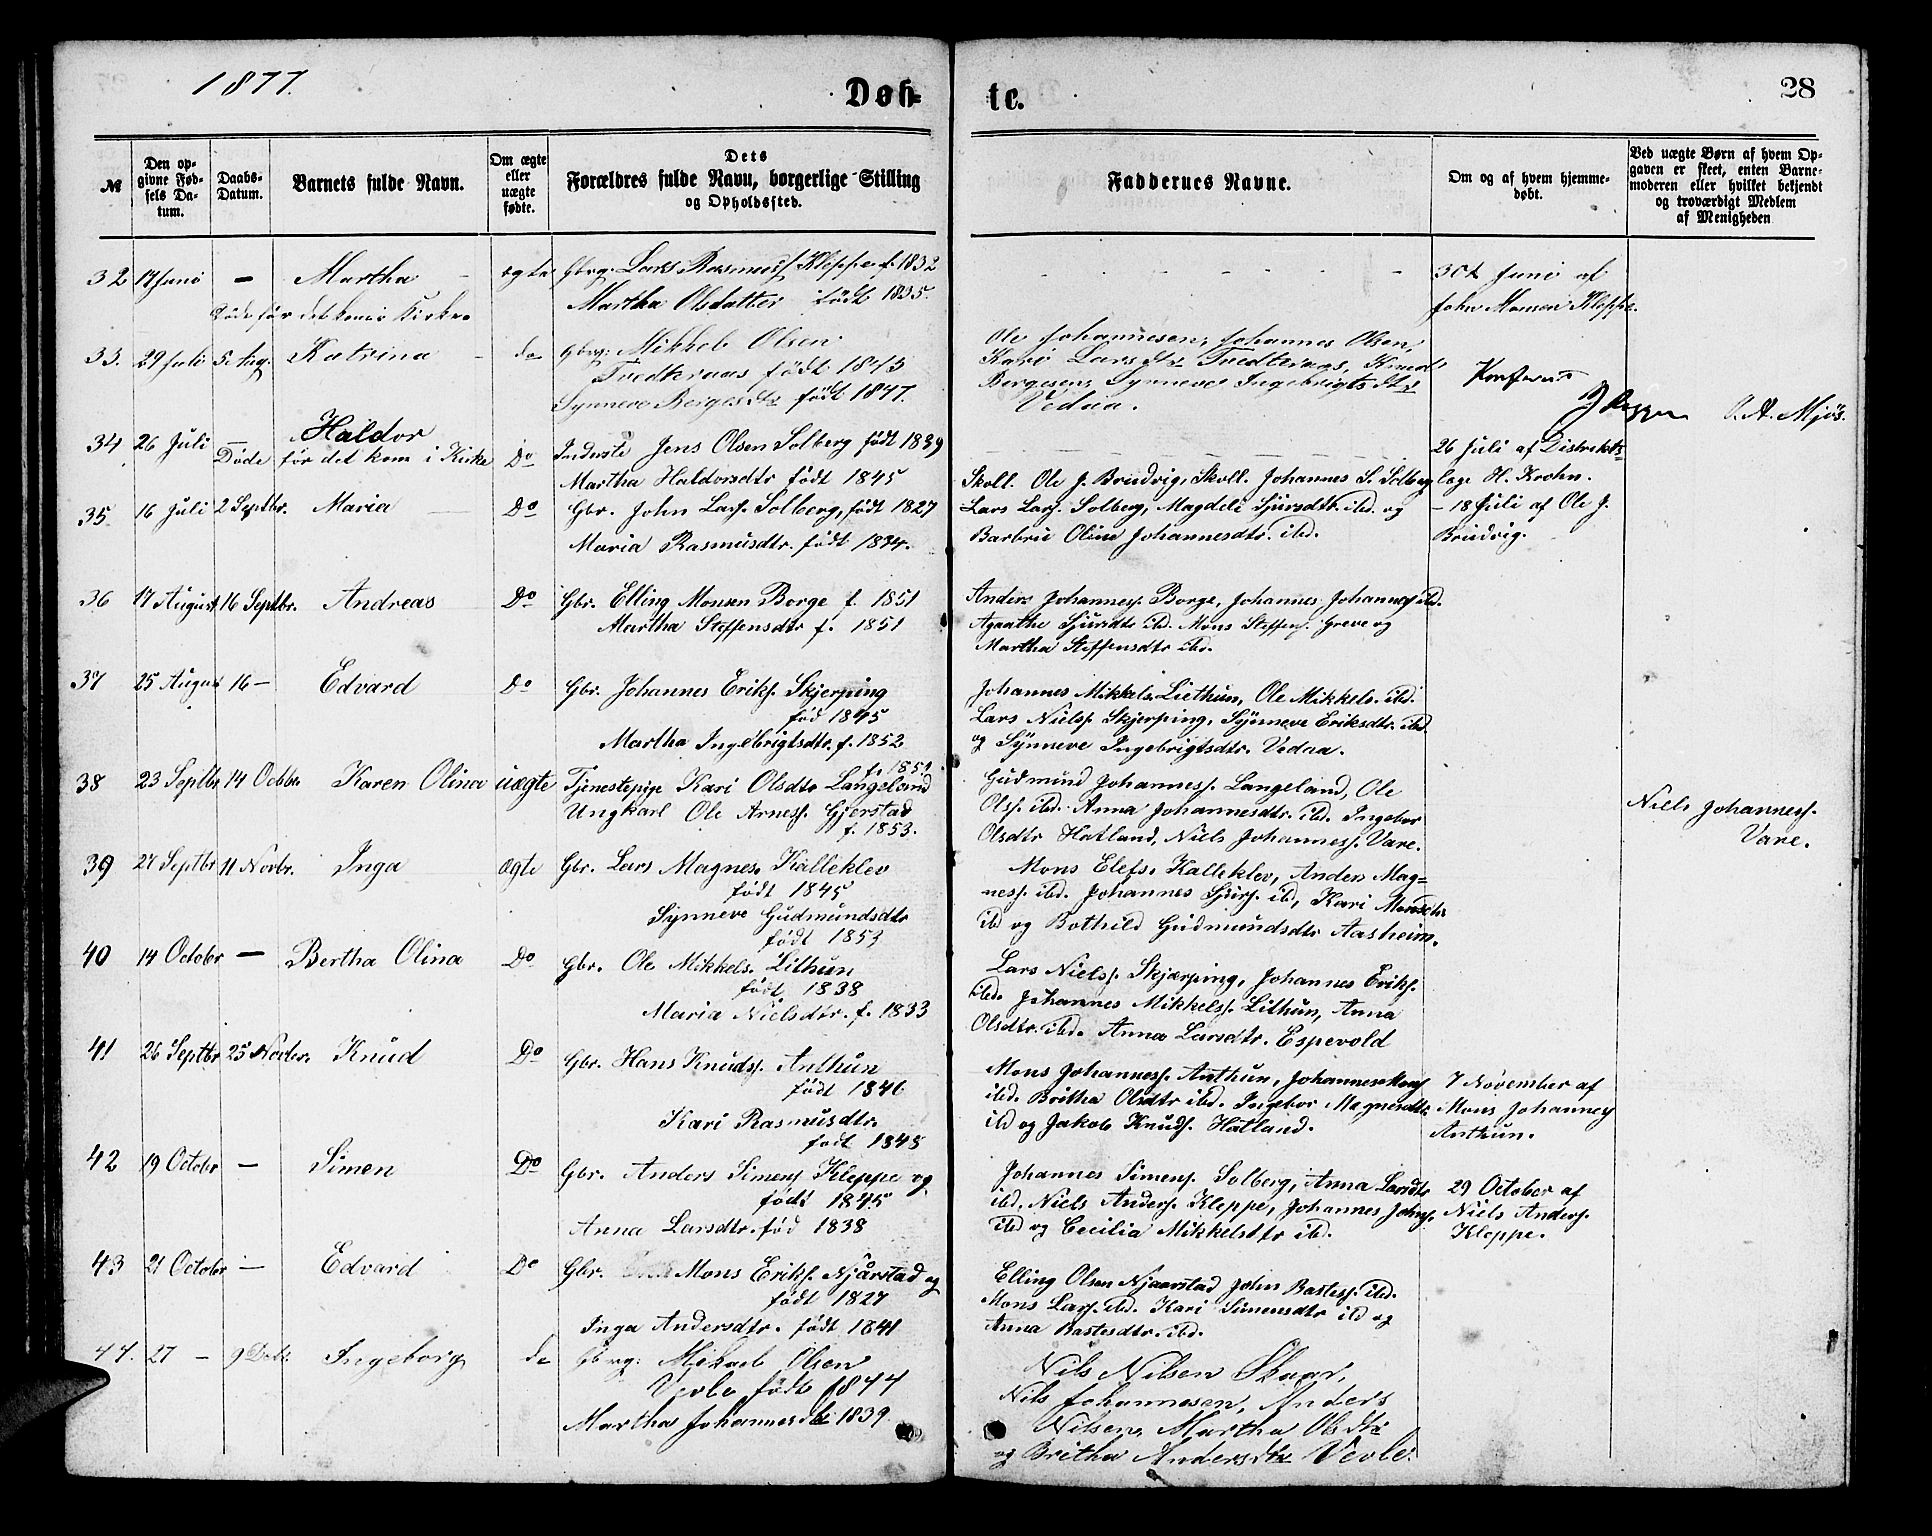 1877.
Døb-
te.
28
№
Den op-
givne Fød-
sels Da-
tum.
Daabs-
Datum.
Barnets fulde Navn.
Om ægte
eller
uægte
fødte.
Dets
Forældres fulde Navn, borgerlige Stilling
og Opholdssted.
Faddernes Navne.
Om og af hvem hjemme-
døbt.
Ved uægte Børn af hvem Op-
gaven er skeet, enten Barne-
moderen eller hvilket bekjendt
og troværdigt Medlem
af Menigheden
32 17 Juni — Martha — ægte Gbrg. Lars Rasmuss. Kleppe f. 1832
Døde før det kom i Kirke
Martha Olsdatter født 1835.
30t Juni af
John Monsen Kleppe.
33. 29 Juli 5 Aug. Katrina — do Gbrg: Mikkel Olsen
Tvedternæs født 1843
Synneve Bergesdtr født 1847.
Ole Johannesen, Johannes Olsen,
Kari Larsdtr Tvedternæs, Knud
Bergesen, Synneve Ingebrigtsdtr
Vedaa.
O. A. Mjøs.
34 26 Juli — Haldor
Døde før det kom i Kirke Do Inderste Jens Olsen Solberg født 1839
Martha Haldorsdtr født 1845
26 Juli af Distrikts-
læge H. Krohn.
35 16 Juli 2 Septbr. Maria — Do Gbr. John Larss. Solberg, født 1827
Maria Rasmusdtr. født 1834.
Skoll. Ole J. Brudvig, Skoll. Johannes S. Solberg
Lars Larss. Solberg, Magdeli Sjursdtr. ibd. og
Barbrú Oline Johannesdtr. ibd.
- 18 Juli af Ole J.
Brudvig.
36 17 August 16 Septbr. Andreas Do Gbr. Elling Monsen Borge f. 1851
Martha Steffensdtr f. 1851
Anders Johanness. Borge, Johannes Johanness. ibd.
Agaathe Sjursdtr ibd. Mons Steffens. Greve og
Martha Steffensdtr ibd.
37 25 August 16 — Edvard Do Gbr. Johannes Eriks. Skjerping
fød 1845
Martha Ingebrigtsdtr. f. 1852
Johannes Mikkels. Liethun, Ole Mikkels. ibd.
Lars Nielss. Skjerping, Synneve Eriksdtr. ibd
og Synneve Ingebrigtsdtr. Vedaa.
38 23 Septbr 14 Octbr. Karen Olina uægte Tjenestepige Kari Olsdtr Langeland
f. 1851
Ungkarl Ole Arness. Gjerstad
f. 1853.
Gudmund Johanness. Langeland, Ole
Olss. ibd. Anna Johannesdtr. ibd. Ingebor
Olsdtr Hatland, Niels Johanness. Vare.
Niels Johanness.
Vare.
39 27 Septbr 11 Novbr. Inga ægte Gbr. Lars Magnes. Kalleklev
født 1845
Synneve Gudmundsdtr
født 1853
Mons Elefs. Kalleklev, Anders Mag-
ness. ibd. Johannes Sjurs. ibd, Kari Monsdtr
ibd og Bothild Gudmundsdtr Aasheim.
40 14 Octobr — Bertha Olina Do Gbr. Ole Mikkels. Lithun
født 1838
Maria Nielsdtr. f. 1833
Lars Nielss. Skjærping, Johannes Eriks.
ibd. Johannes Mikkelss. Lithun, Anna
Olsdtr. ibd. Anna Larsdtr. Espevold
41 26 Septbr 25 Novbr. Knud Do Gbr. Hans Knuds. Anthun
født 1846
Kari Rasmusdtr.
født 1845
Mons Johanness. Anthun, Johannes Mons.
ibd. Britha Olsdtr ibd. Ingebor Magnesdtr
ibd og Jakob Knuds. Hatland.
7 November af
Mons Johanness
Anthun.
42 19 Octobr — Simen Do Gbr. Anders Simens Kleppe og
født 1845
Anna Larsdtr. fød 1838
Johannes Simens. Solberg, Anna Larsdtr
ibd, Niels Anders. Kleppe, Johannes Johns.
ibd og Cecilia Mikkelsdtr ibd.
29 October af
Niels Anders.
Kleppe.
43 21 Octobr — Edvard Do Gbr. Mons Eriks. Njårstad og
født 1827
Inga Andersdtr. født 1841
Elling Olsen Njaarstad John Bastess. ibd.
Mons Larss. ibd. Kari Simensdtr ibd og
Anna Bastesdtr. ibd.
44. 27 — 9 Debr. Ingeborg do Gbrg: Mikael Olsen
Vevle født 1844
Martha Johannesdtr 1839.
Nils Nilsen Skaar,
Nils Johannesen, Anders
Nilsen, Martha Olsdtr
og Britha Andersdtr Vevle.